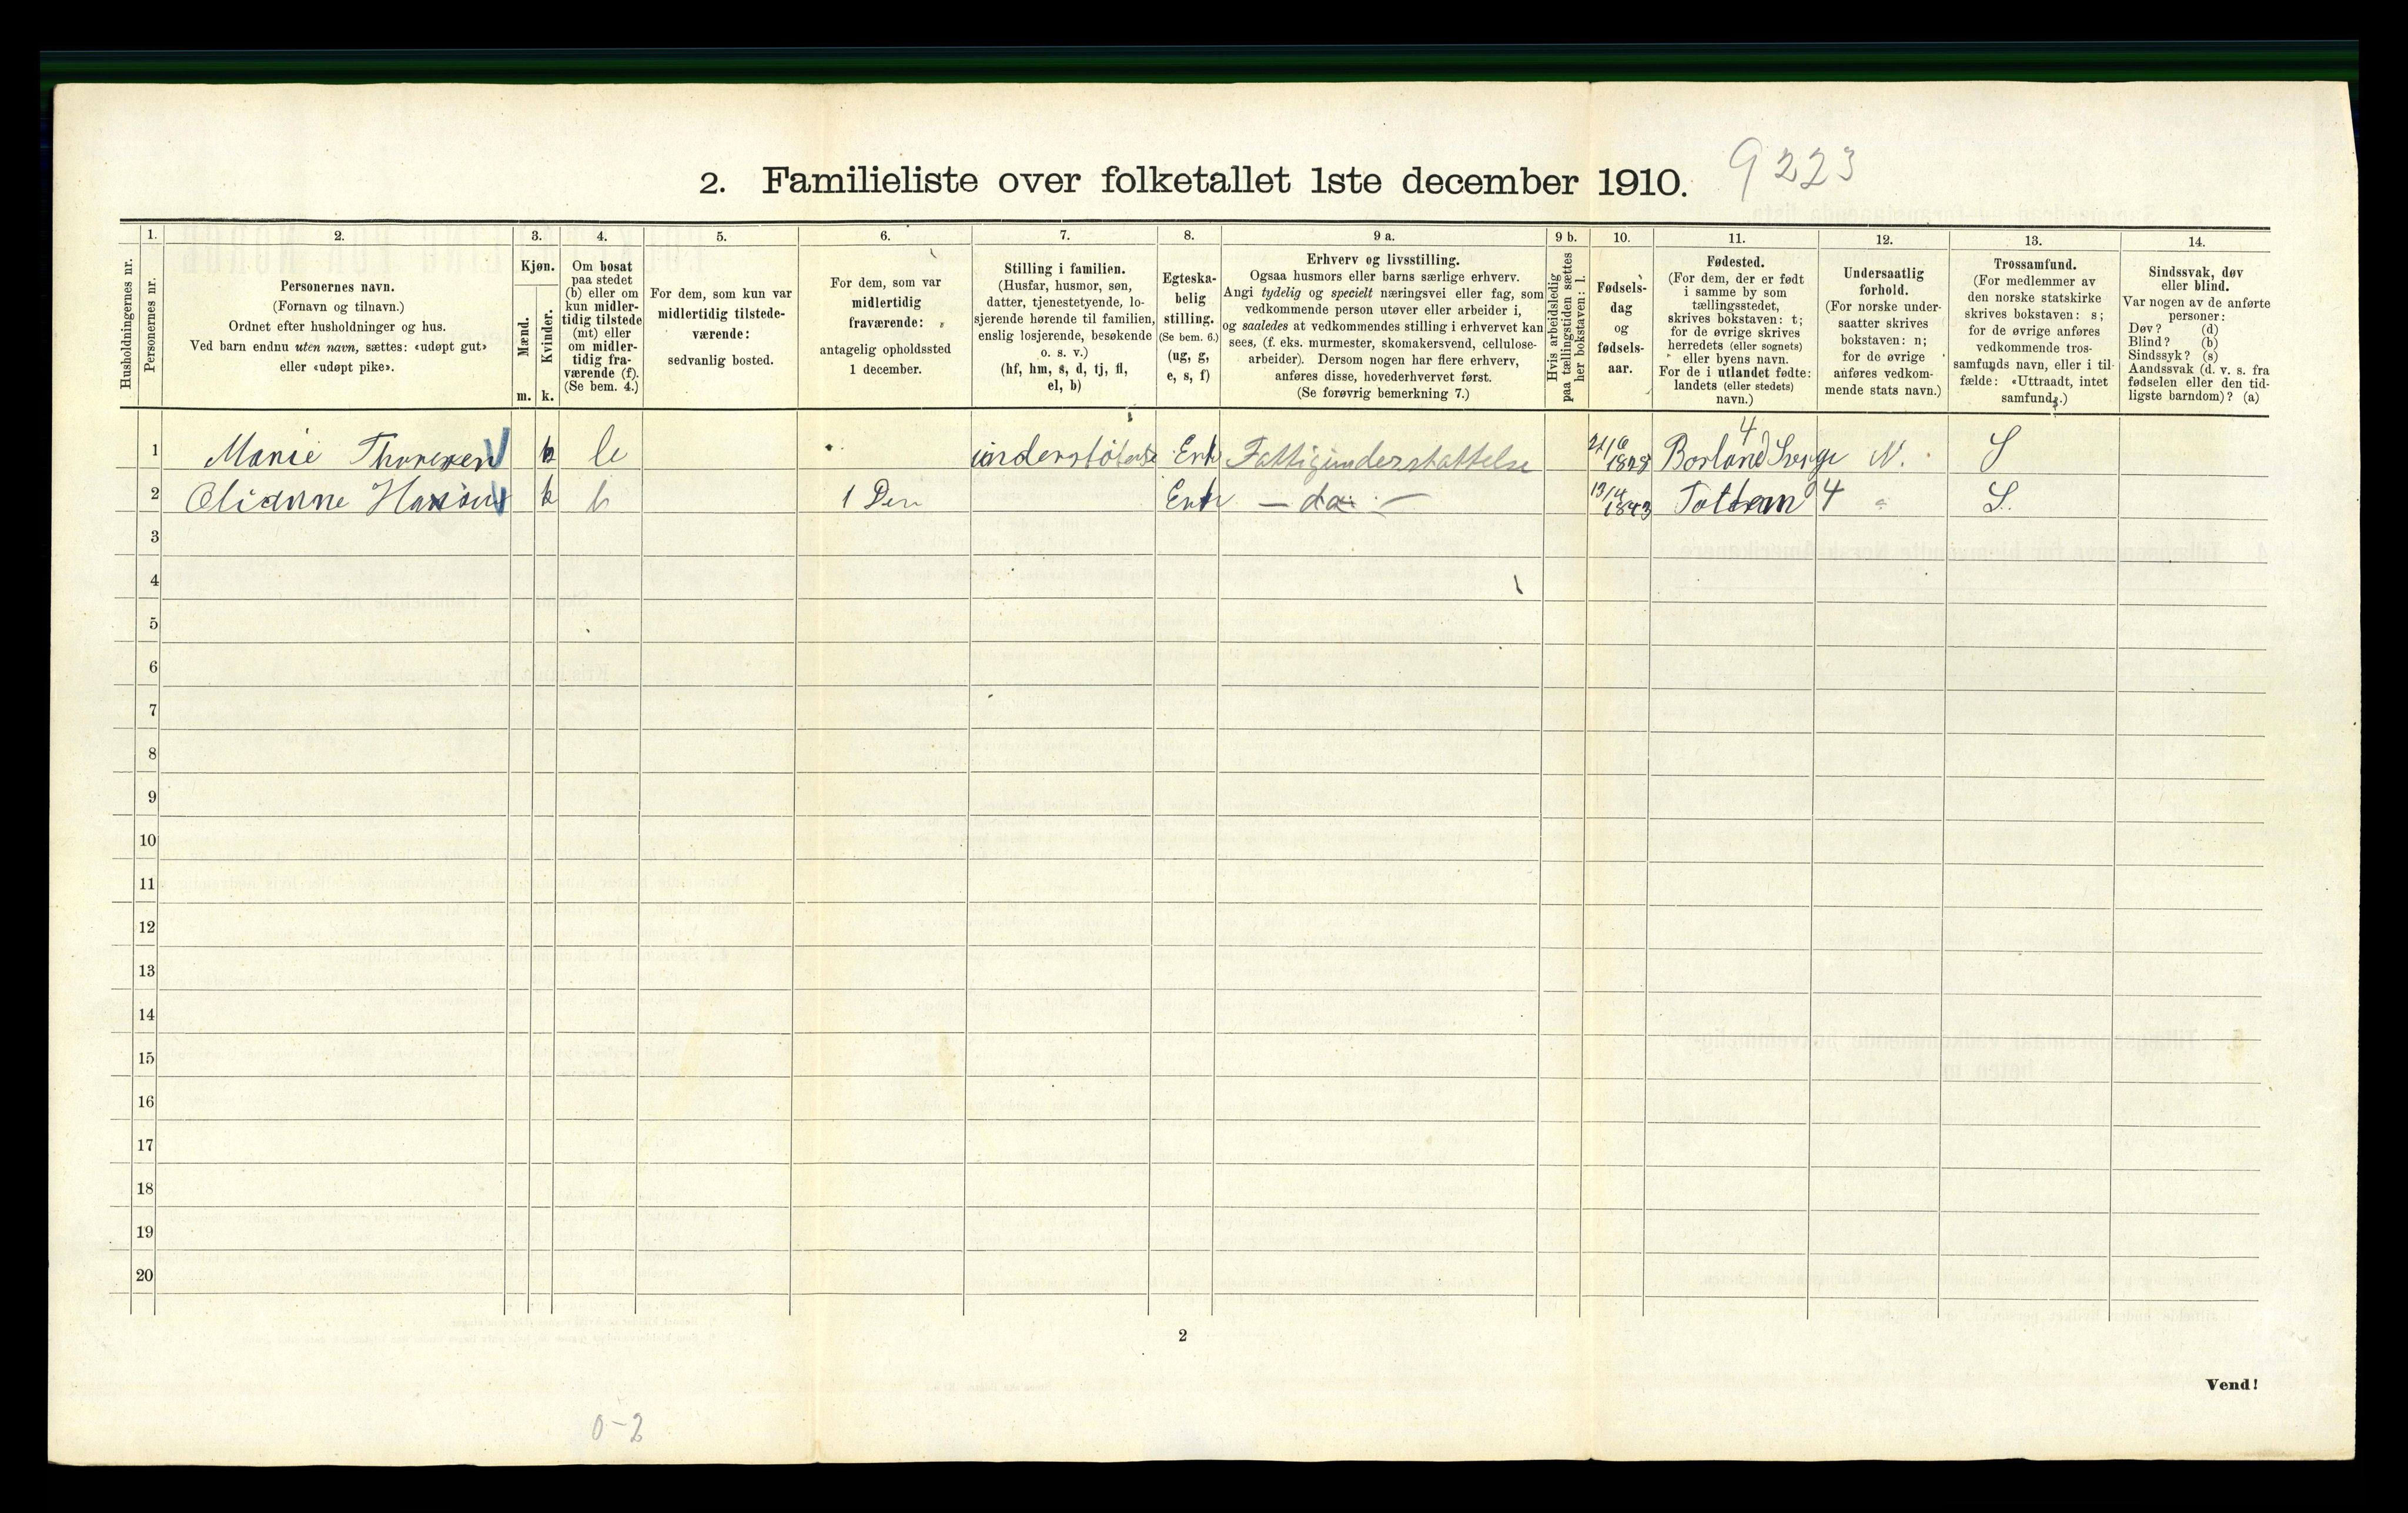 2. Familieliste over folketallet 1ste december 1910. 9223
Husholdningernes nr.
1.
Personernes nr.
2.
Personernes navn.
(Fornavn og tilnavn.)
Ordnet efter husholdninger og hus.
Ved barn endnu uten navn, sættes: «udøpt gut»
eller «udøpt pike».
3.
Kjøn.
Mænd.
Kvinder.
m. k.
4.
Om bosat
paa stedet
(b) eller om
kun midler-
tidig tilstede
(mt) eller
om midler-
tidig fra-
værende (f).
(Se bem. 4.)
5.
For dem, som kun var
midlertidig tilstede-
værende:
sedvanlig bosted.
6.
For dem, som var
midlertidig
fraværende:
antagelig opholdssted
1 december.
7.
Stilling i familien.
(Husfar, husmor, søn,
datter, tjenestetyende, lo-
sjerende hørende til familien,
enslig losjerende, besøkende
o. s. v.)
(hf, hm, s, d, tj, fl,
el, b)
8.
Egteska-
belig
stilling.
(Se bem. 6.)
(ug, g,
e, s, f)
9 a.
Erhverv og livsstilling.
Ogsaa husmors eller barns særlige erhverv.
Angi tydelig og specielt næringsvei eller fag, som
vedkommende person utøver eller arbeider i,
og saaledes at vedkommendes stilling i erhvervet kan
sees, (f. eks. murmester, skomakersvend, cellulose-
arbeider). Dersom nogen har flere erhverv,
anføres disse, hovederhvervet først.
(Se forøvrig bemerkning 7.)
9 b.
Hvis arbeidsledig
paa tællingstiden sættes
her bokstaven: l.
10.
Fødsels-
dag
og
fødsels-
aar.
11.
Fødested.
(For dem, der er født
i samme by som
tællingsstedet,
skrives bokstaven: t;
for de øvrige skrives
herredets (eller sognets)
eller byens navn.
For de i utlandet fødte:
landets (eller stedets)
navn.)
12.
Undersaatlig
forhold.
(For norske under-
saatter skrives
bokstaven: n;
for de øvrige
anføres vedkom-
mende stats navn.)
13.
Trossamfund.
(For medlemmer av
den norske statskirke
skrives bokstaven: s;
for de øvrige anføres
vedkommende tros-
samfunds navn, eller i til-
fælde: «Uttraadt, intet
samfund».)
14.
Sindssvak, døv
eller blind.
Var nogen av de anførte
personer:
Døv? (d)
Blind? (b)
Sindssyk? (s)
Aandssvak (d. v. s. fra
fødselen eller den tid-
ligste barndom)? (a)
1 Marie Thoresen k understøtelse Enk Fattigunderstattelse 4 N. S
2 Olianne Hansen k b 1 Den Enk — do — 13/4 1843 4 S.
3
4
5
6
7
8
9
10
11
12
13
14
15
16
17
18
19
20
2
Vend!
0-2